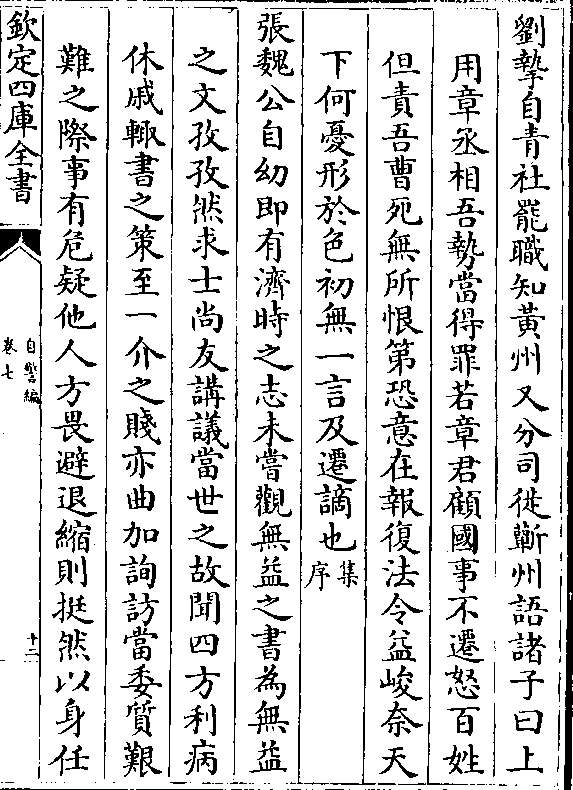 劉摯自青社罷職知黃州又分司徙蘄州語諸子曰上
用章丞相吾勢當得罪若章君顧國事不遷怒百姓
但責吾曹死無所恨第恐意在報復法令益峻奈天
下何憂形於色初無一言及遷謫也集序
張魏公自幼即有濟時之志未嘗觀無益之書為無益
之文孜孜然求士尚友講議當世之故聞四方利病
休戚輙書之策至一介之賤亦曲加詢訪當委質艱
難之際事有危疑他人方畏避退縮則挺然以身任
欽定四庫全書
自警編
卷七
十二